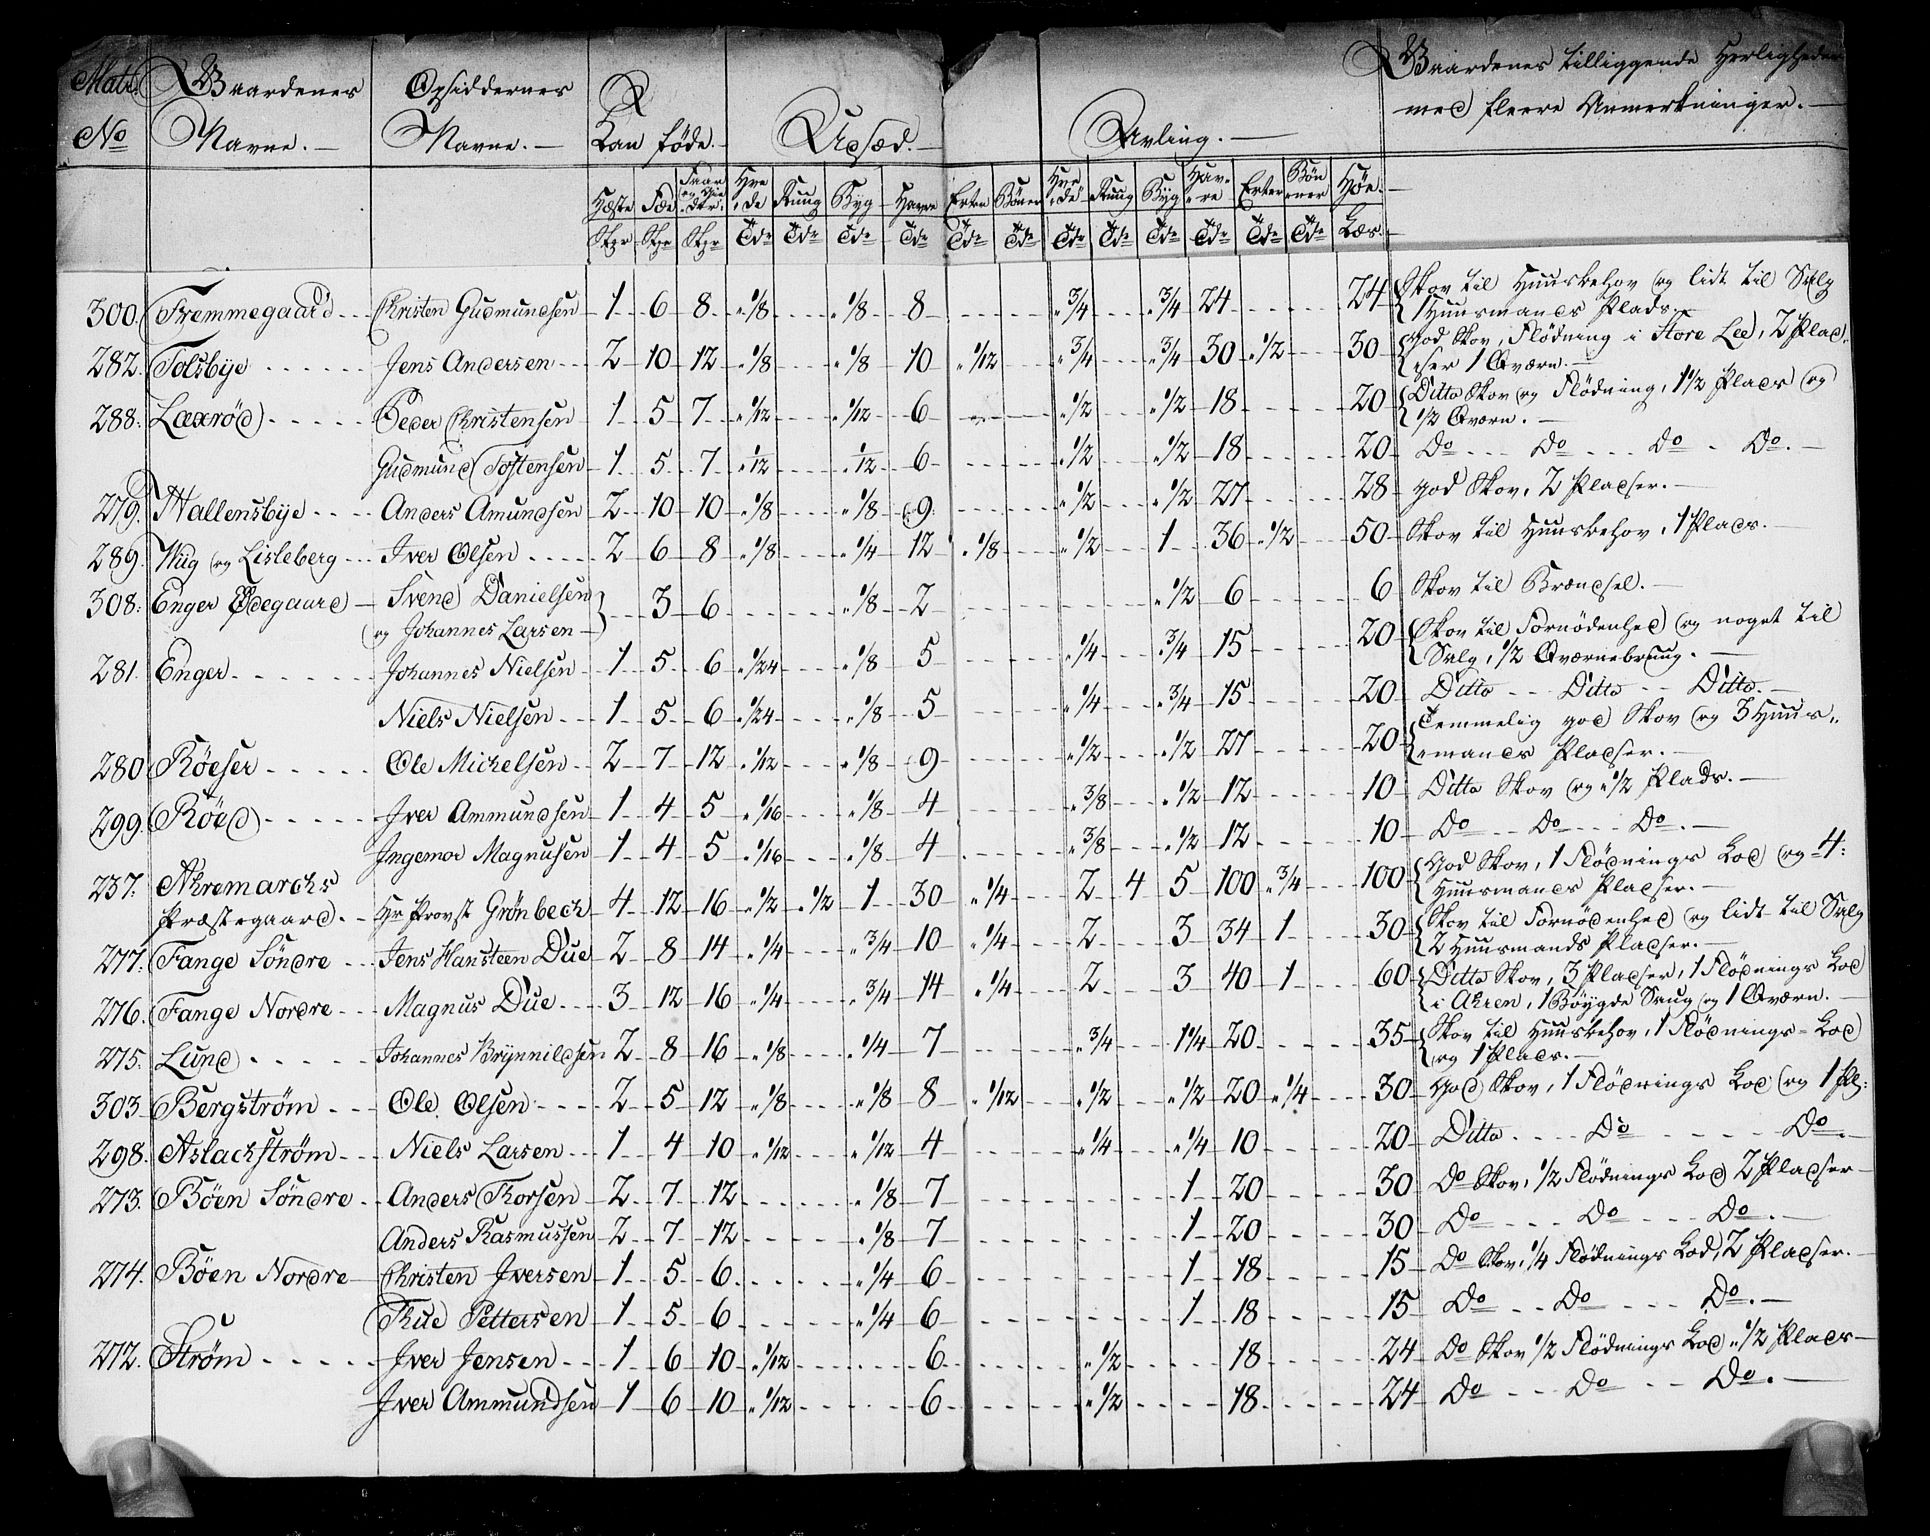 Matr. No | Gaardenes Navne. | Opsiddernes Navne. | Kan føde. | Udsæd. | Avling. | Gaardenes tilliggende Herligheder med fleere Anmerkninger.
Hæste | Fæe | Faar og Giedr | Hvede | Rug | Byg | Havre | Erter | Bøner | Hvede | Rug | Byg | Havre | Erter | Bønner | Høe
Stkr | Stkr | Stkr | Tdr | Tdr | Tdr | Tdr | Tdr | Tdr | Tdr | Tdr | Tdr | Tdr | Tdr | Tdr | Læs
300. Fremmegaard Christen Gudmundsen 1 6 8 1/8 1/8 8 3/4 3/4 24 24 Skov til Huusbehov og lidt til Salg
1 Huusmands Plads.
282. Tolsbye Jens Andersen 2 10 12 1/8 1/8 10 1/12 3/4 3/4 30 1/2 30 God Skov, Flödning i Store Lee, 2 Plad„
ser 1 Qværn.
288. Laxröd Peder Christensen 1 5 7 1/12 1/12 6 1/2 1/2 18 20 Ditto Skov og Flödning, 1 1/2 Plads og
1/2 Qværn.
Gudmund Tostensen 1 5 7 1/12 1/12 6 1/2 1/2 18 20 Do Do Do Do.
279. Hallensbye Anders Amundsen 2 10 10 1/8 1/8 9 1/2 1/2 27 28 god Skov, 2 Pladser.
289. Wiig og Lisleberg Iver Olsen 2 6 8 1/8 1/4 12 1/8 1/2 1 36 1/2 50 Skov til Huusbehov, 1 Plads.
308. Enger Ødegaard Svend Danielsen
og Johannes Larsen 3 6 1/8 2 1/2 6 6 Skov til Brændsel.
281. Enger Johannes Nielsen 1 5 6 1/24 1/8 5 1/4 3/4 15 20 Skov til Fornödenhed og noget til
Salg, 1/2 Qværnebruug.
Niels Nielsen 1 5 6 1/24 1/8 5 1/4 3/4 15 20 Ditto Ditto Ditto.
280 Röeser Ole Michelsen 2 7 12 1/12 1/8 9 1/2 1/2 27 20 Temmelig god Skov og 3 Huus„
mands Pladser.
299. Röed Iver Ammundsen 1 4 5 1/16 1/8 4 3/8 1/2 12 10 Ditto Skov og 1/2 Plads.
Ingemor Magnusen 1 4 5 1/16 1/8 4 3/8 1/2 12 10 Do Do Do.
237. Akremarchs
Præstegaard. Hr Provst Grönbech 4 12 16 1/2 1/2 1 30 1/4 2 4 5 100 3/4 100 God Skov, 1 Flödnings Lod og 4
Huusmands Pladser.
277. Fange Söndre Jens Hansteen Due 2 8 14 1/4 3/4 10 1/4 2 3 34 1 30 Skov til Fornödenhed og lidt til Salg
2 Huusmands Pladser.
276. Fange Nordre Magnus Due 3 12 16 1/4 3/4 14 1/4 2 3 40 1 60 Ditto Skov, 3 Pladser, 1 Flödnings Lod
i Akren, 1 Böygde Saug og 1 Qværn.
275. Lund Johannes Brÿnnildsen 2 8 16 1/8 1/4 7 3/4 1 1/4 20 35 Skov til Huusbehov, 1 Flödnings-Lod
og 1 Plads.
303. Bergström Ole Olsen 2 5 12 1/8 1/8 8 1/12 1/2 1/2 20 1/4 30 God Skov, 1 Flödnings Lod og 1 Pl:
298. Aslackström Niels Larsen 1 4 10 1/12 1/12 4 1/4 1/4 10 20 Ditto Do Do.
273. Böen Söndre Anders Thorsen 2 7 12 1/8 7 1 20 30 Do Skov, 1/2 Flödnings Lod 2 Pladser
Anders Rasmussen 2 7 12 1/8 7 1 20 30 Do Do Do.
274. Böen Nordre Christen Iversen 1 5 6 1/4 6 1 18 15 Do Skov, 1/4 Flödnings Lod, 2 Pladser.
Thue Pettersen 1 5 6 1/4 6 1 18 15 Do Do Do.
272. Ström Iver Jensen 1 6 10 1/12 6 1/2 18 24 Do Skov 1/2 Flödnings Lod 1/2 Plads
Iver Ammundsen 1 6 10 1/12 6 1/2 18 24 Do Do Do.